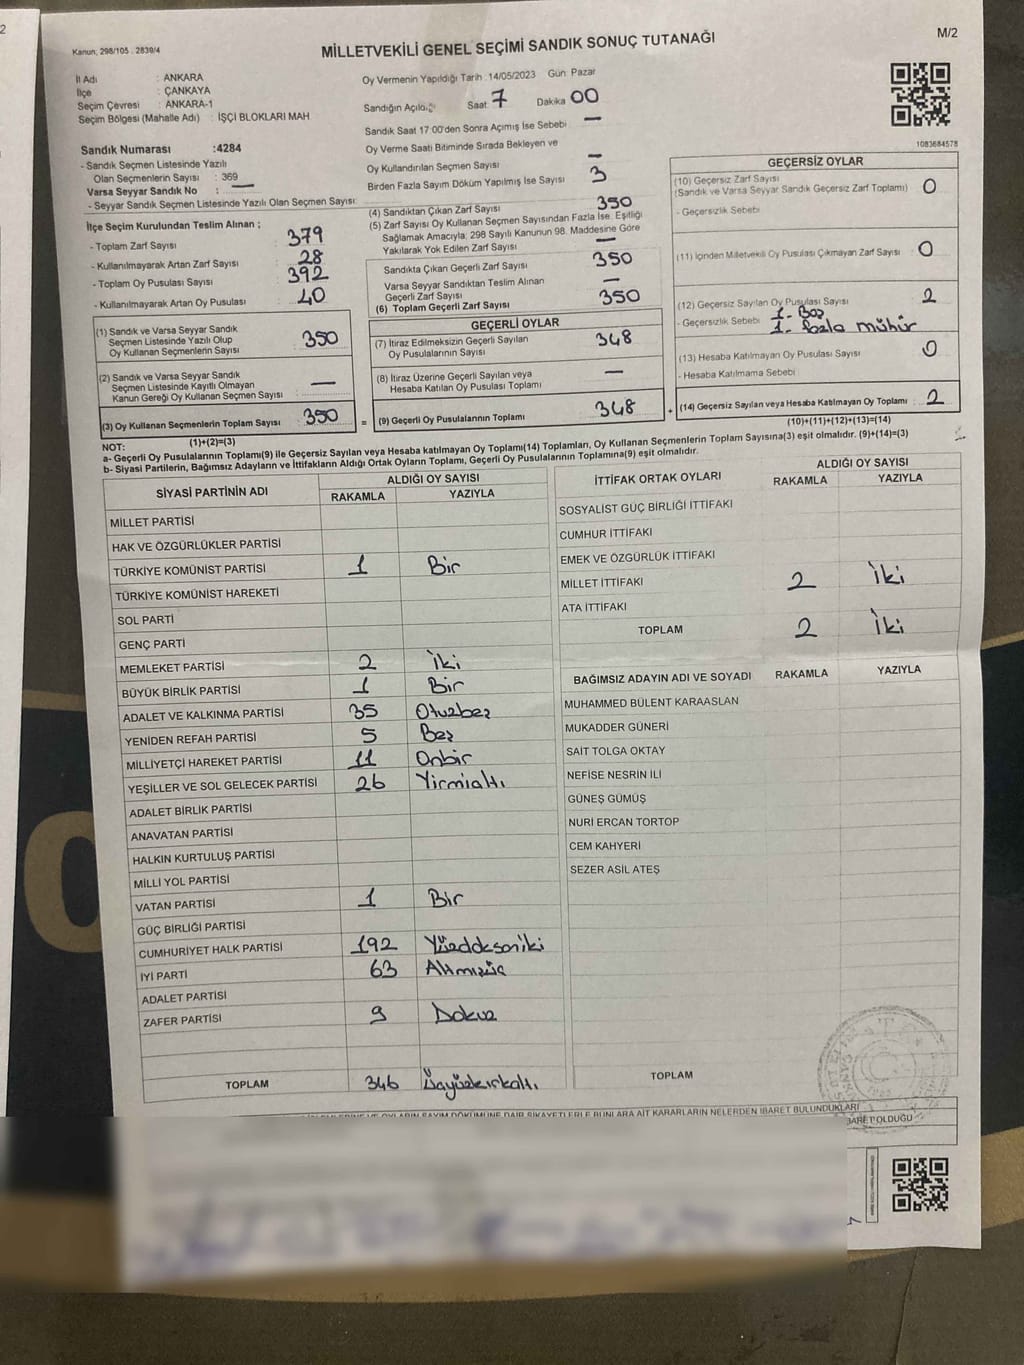 2
Kanun; 298/105 . 2839/4
MİLLETVEKİLİ GENEL SEÇİMİ SANDIK SONUÇ TUTANAĞI
M/2
İl Adı : ANKARA
İlçe : ÇANKAYA
Seçim Çevresi : ANKARA-1
Seçim Bölgesi (Mahalle Adı) : İŞÇİ BLOKLARI MAH
Oy Vermenin Yapıldığı Tarih : 14/05/2023 Gün Pazar
Sandığın Açıldığı Saat 7 Dakika 00
Sandık Saat 17:00'den Sonra Açımış İse Sebebi —
Oy Verme Saati Bitiminde Sırada Bekleyen ve
Oy Kullandırılan Seçmen Sayısı —
Birden Fazla Sayım Döküm Yapılmış İse Sayısı 3
1083684578
Sandık Numarası :4284
- Sandık Seçmen Listesinde Yazılı
Olan Seçmenlerin Sayısı : 369
Varsa Seyyar Sandık No : —
- Seyyar Sandık Seçmen Listesinde Yazılı Olan Seçmen Sayısı:
İlçe Seçim Kurulundan Teslim Alınan ;
- Toplam Zarf Sayısı 379
- Kullanılmayarak Artan Zarf Sayısı 28
- Toplam Oy Pusulası Sayısı 392
- Kullanılmayarak Artan Oy Pusulası 40
(1) Sandık ve Varsa Seyyar Sandık
Seçmen Listesinde Yazılı Olup
Oy Kullanan Seçmenlerin Sayısı 350
(2) Sandık ve Varsa Seyyar Sandık
Seçmen Listesinde Kayıtlı Olmayan
Kanun Gereği Oy Kullanan Seçmen Sayısı —
(3) Oy Kullanan Seçmenlerin Toplam Sayısı 350
(1)+(2)=(3)
(4) Sandıktan Çıkan Zarf Sayısı 350
(5) Zarf Sayısı Oy Kullanan Seçmen Sayısından Fazla İse, Eşitliği
Sağlamak Amacıyla; 298 Sayılı Kanunun 98. Maddesine Göre
Yakılarak Yok Edilen Zarf Sayısı —
Sandıkta Çıkan Geçerli Zarf Sayısı 350
Varsa Seyyar Sandıktan Teslim Alınan
Geçerli Zarf Sayısı —
(6) Toplam Geçerli Zarf Sayısı 350
GEÇERLİ OYLAR
(7) İtiraz Edilmeksizin Geçerli Sayılan
Oy Pusulalarının Sayısı 348
(8) İtiraz Üzerine Geçerli Sayılan veya
Hesaba Katılan Oy Pusulası Toplamı —
= (9) Geçerli Oy Pusulalarının Toplamı 348
GEÇERSİZ OYLAR
(10) Geçersiz Zarf Sayısı
(Sandık ve Varsa Seyyar Sandık Geçersiz Zarf Toplamı) 0
- Geçersizlik Sebebi
(11) İçinden Milletvekili Oy Pusulası Çıkmayan Zarf Sayısı 0
(12) Geçersiz Sayılan Oy Pusulası Sayısı 2
- Geçersizlik Sebebi 1- Boş
1- fazla mühür
(13) Hesaba Katılmayan Oy Pusulası Sayısı 0
- Hesaba Katılmama Sebebi
+ (14) Geçersiz Sayılan veya Hesaba Katılmayan Oy Toplamı 2
(10)+(11)+(12)+(13)=(14)
NOT:
a- Geçerli Oy Pusulalarının Toplamı(9) ile Geçersiz Sayılan veya Hesaba katılmayan Oy Toplamı(14) Toplamları, Oy Kullanan Seçmenlerin Toplam Sayısına(3) eşit olmalıdır. (9)+(14)=(3)
b- Siyasi Partilerin, Bağımsız Adayların ve İttifakların Aldığı Ortak Oyların Toplamı, Geçerli Oy Pusulalarının Toplamına(9) eşit olmalıdır.
SİYASİ PARTİNİN ADI ALDIĞI OY SAYISI
RAKAMLA YAZIYLA
MİLLET PARTİSİ
HAK VE ÖZGÜRLÜKLER PARTİSİ
TÜRKİYE KOMÜNİST PARTİSİ 1 Bir
TÜRKİYE KOMÜNİST HAREKETİ
SOL PARTİ
GENÇ PARTİ
MEMLEKET PARTİSİ 2 İki
BÜYÜK BİRLİK PARTİSİ 1 Bir
ADALET VE KALKINMA PARTİSİ 35 Otuzbeş
YENİDEN REFAH PARTİSİ 5 Beş
MİLLİYETÇİ HAREKET PARTİSİ 11 Onbir
YEŞİLLER VE SOL GELECEK PARTİSİ 26 Yirmialtı
ADALET BİRLİK PARTİSİ
ANAVATAN PARTİSİ
HALKIN KURTULUŞ PARTİSİ
MİLLİ YOL PARTİSİ
VATAN PARTİSİ 1 Bir
GÜÇ BİRLİĞİ PARTİSİ
CUMHURİYET HALK PARTİSİ 192 Yüzdoksaniki
İYİ PARTİ 63 Altmışüç
ADALET PARTİSİ
ZAFER PARTİSİ 9 Dokuz
TOPLAM 346 Üçyüzkırkaltı
İTTİFAK ORTAK OYLARI ALDIĞI OY SAYISI
RAKAMLA YAZIYLA
SOSYALİST GÜÇ BİRLİĞİ İTTİFAKI
CUMHUR İTTİFAKI
EMEK VE ÖZGÜRLÜK İTTİFAKI
MİLLET İTTİFAKI 2 İki
ATA İTTİFAKI
TOPLAM 2 İki
BAĞIMSIZ ADAYIN ADI VE SOYADI RAKAMLA YAZIYLA
MUHAMMED BÜLENT KARAASLAN
MUKADDER GÜNERİ
SAİT TOLGA OKTAY
NEFİSE NESRİN İLİ
GÜNEŞ GÜMÜŞ
NURİ ERCAN TORTOP
CEM KAHYERİ
SEZER ASİL ATEŞ
TOPLAM
OYLARIN SAYIM DÖKÜMÜNE DAİR ŞİKAYETLERLE BUNLARA AİT KARARLARIN NELERDEN İBARET BULUNDUKLARI
OLDUĞU